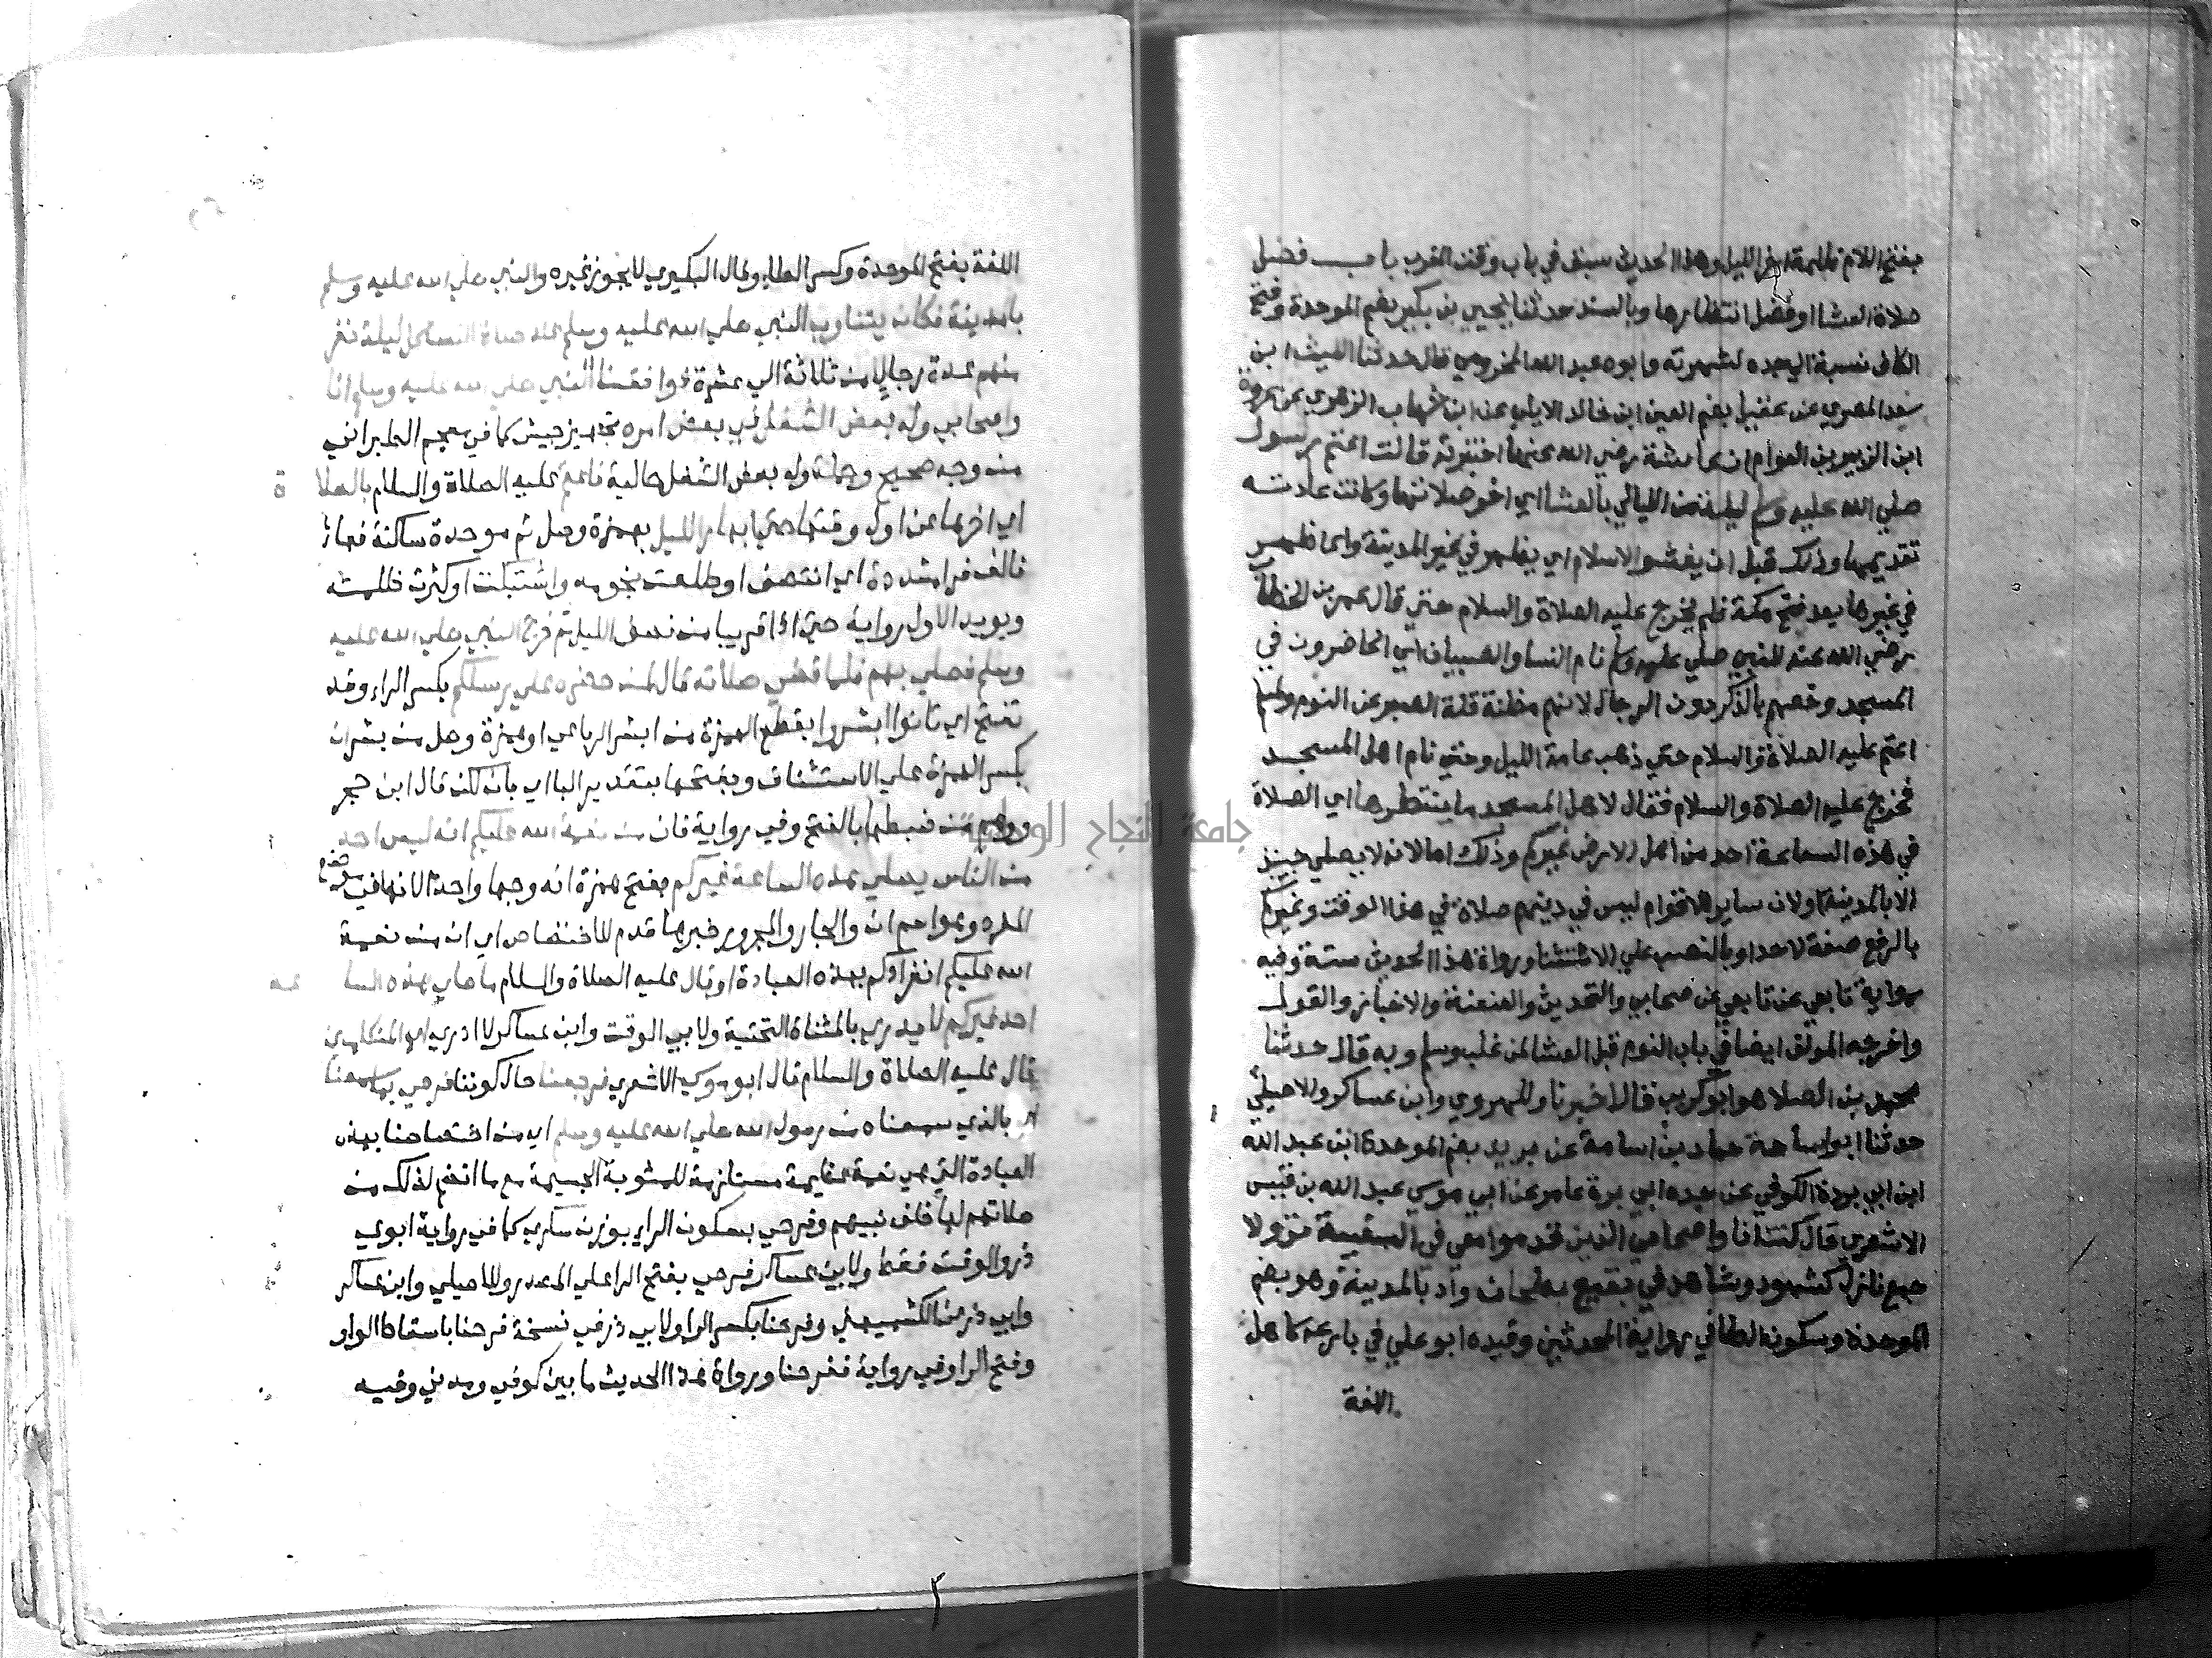 بفتح اللام ظلمة اخر الليل وهذا الحديث سبق في باب وقت المغرب باب فضل
صلاة العشا او فضل انتظارها وبالسند حدثنا يحيي بن بكير بضم الموحدة وفتح
الكاف نسبة الي جده لشهرته وابوه عبد الله المخزومي قال حدثنا الليث ابن
سعد المصري عن عقيل بضم العين ابن خالد الايلي عن ابن شهاب الزهري عن عروة
ابن الزبير بن العوام ان عايشة رضي الله عنها اخبرته قالت اعتم رسول
صلي الله عليه وسلم ليلة من الليالي بالعشا اي اخر صلاتها وكانت عادته
تقديمها وذلك قبل ان يفشو الاسلام اي يظهر في غير المدينة وانما ظهر
في غيرها بعد فتح مكة فلم يخرج عليه الصلاة والسلام حتي قال عمر بن الخطاب
رضي الله عنه للنبي صلي عليه وسلم نام النسا والصبيان اي الحاضرون في
المسجد وخصهم بالذكر دون الرجال لانهم مظنة قلة الصبر عن النوم ولسلم
اعتم عليه الصلاة والسلام حتي ذهب عامة الليل وحتي نام اهل المسجد
فخرج عليه الصلاة والسلام فقال لاهل المسجد ما ينتظرها اي الصلاة
في هذه الساعة احد من اهل الارض غيركم وذلك اما لانه لا يصلي حينيذ
الا بالمدينة او لان ساير الاقوام ليس في دينهم صلاة في هذا الوقت وغيركم
بالرفع صفة لاحد او بالنصب علي الاستثنا ورواة هذا الحديث ستة وفيه
رواية تابعي عن تابعي عن صحابي والتحديث والعنعنة والاخبار والقول
واخرجه المولف ايضا في باب النوم قبل العشا لمن غلب وسلم وبه قال حدثنا
محمد بن العلا هو ابو كريب قال اخبرنا وللهروي وابن عساكر والاصيلي
حدثنا ابو اسامة حماد بن اسامة عن بريد بضم الموحدة ابن عبد الله
ابن ابي بردة الكوفي عن جده ابي بردة عامر عن ابي موسي عبد الله بن قيس
الاشعري قال كنت انا واصحابي الذين قدموا معي في السفينة نزولا
جمع نازل كشهود وشاهد في بقيع بطحان واد بالمدينة وهو بضم
الموحدة وسكون الطا في رواية المحدثين وقيده ابو علي في بارعه كاهل
اللغة
اللغة بفتح الموحدة وكسر الطاء وقال البكري لا يجوز غيره والنبي صلي الله عليه وسلم
بالمدينة فكان يتناوب النبي صلي الله عليه وسلم عند صلاة العشا كل ليلة نفر
منهم عدة رجال من ثلاثة الي عشرة فوافقنا النبي صلي الله عليه وسلم انا
واصحابي وله بعض الشغل في بعض امره تجهيز جيش كما في معجم الطبراني
من وجه صحيح وجملة وله بعض الشغل حالية فاعتم عليه الصلاة والسلام بالصلاة
اي اخرها عن اول وقتها حتي ابهار الليل بهمزة وصل ثم موحدة ساكنة فهاء
فالف فرا مشددة اي انتصف او طلعت نجومه واشتبكت او كثرت ظلمته
ويويد الاول رواية حتي اذا قريبا من نصف الليل ثم خرج النبي صلي الله عليه
وسلم فصلي بهم فلما قضي صلاته قال لمن حضره علي رسلكم بكسر الراء وقد
تفتح اي تانوا ابشروا بقطع الهمزة من ابشر الرباعي او همزة وصل من بشر ان
بكسر الهمزة علي الاستئناف وبفتحها بتقدير البا اي بان لكن قال ابن حجر
ووهم من ضبطها بالفتح وفي رواية فان من نعمة الله عليكم انه ليس احد
من الناس يصلي هذه الساعة غيركم بفتح همزة انه وجها واحدا لانها في موضع
المفرد وهو اسم ان والجار والمجرور خبرها قدم للاختصاص اي ان من نعمة
الله عليكم انفرادكم بهذه العبادة او قال عليه الصلاة والسلام ما صلي هذه الساعة
احد غيركم لا يدري بالمثناة التحتية ولابي الوقت وابن عساكر لا ادري اي الكلمتين
قال عليه الصلاة والسلام قال ابو موسي الاشعري فرجعنا حال كوننا فرحي بما سمعنا
اي بالذي سمعناه من رسول الله صلي الله عليه وسلم اي من اختصاصنا بهذه
العبادة التي هي نعمة عظيمة مستلزمة للمثوبة الجسيمة مع ما انضم لذلك من
صلاتهم لها خلف نبيهم وفرحي بسكون الراي بوزن سكري كما في رواية ابوي
ذر والوقت فقط ولابن عساكر فرحي بفتح الرا علي المصدر وللاصيلي وابن عساكر
وابي ذر عن الكشميهني وفرحنا بكسر الرا ولابي ذر في نسخة فرحنا باسقاط الواو
وفتح الرا وفي رواية ففرحنا ورواة هذا الحديث ما بين كوفي ومدني وفيه
جامعة النجاح الوطنية